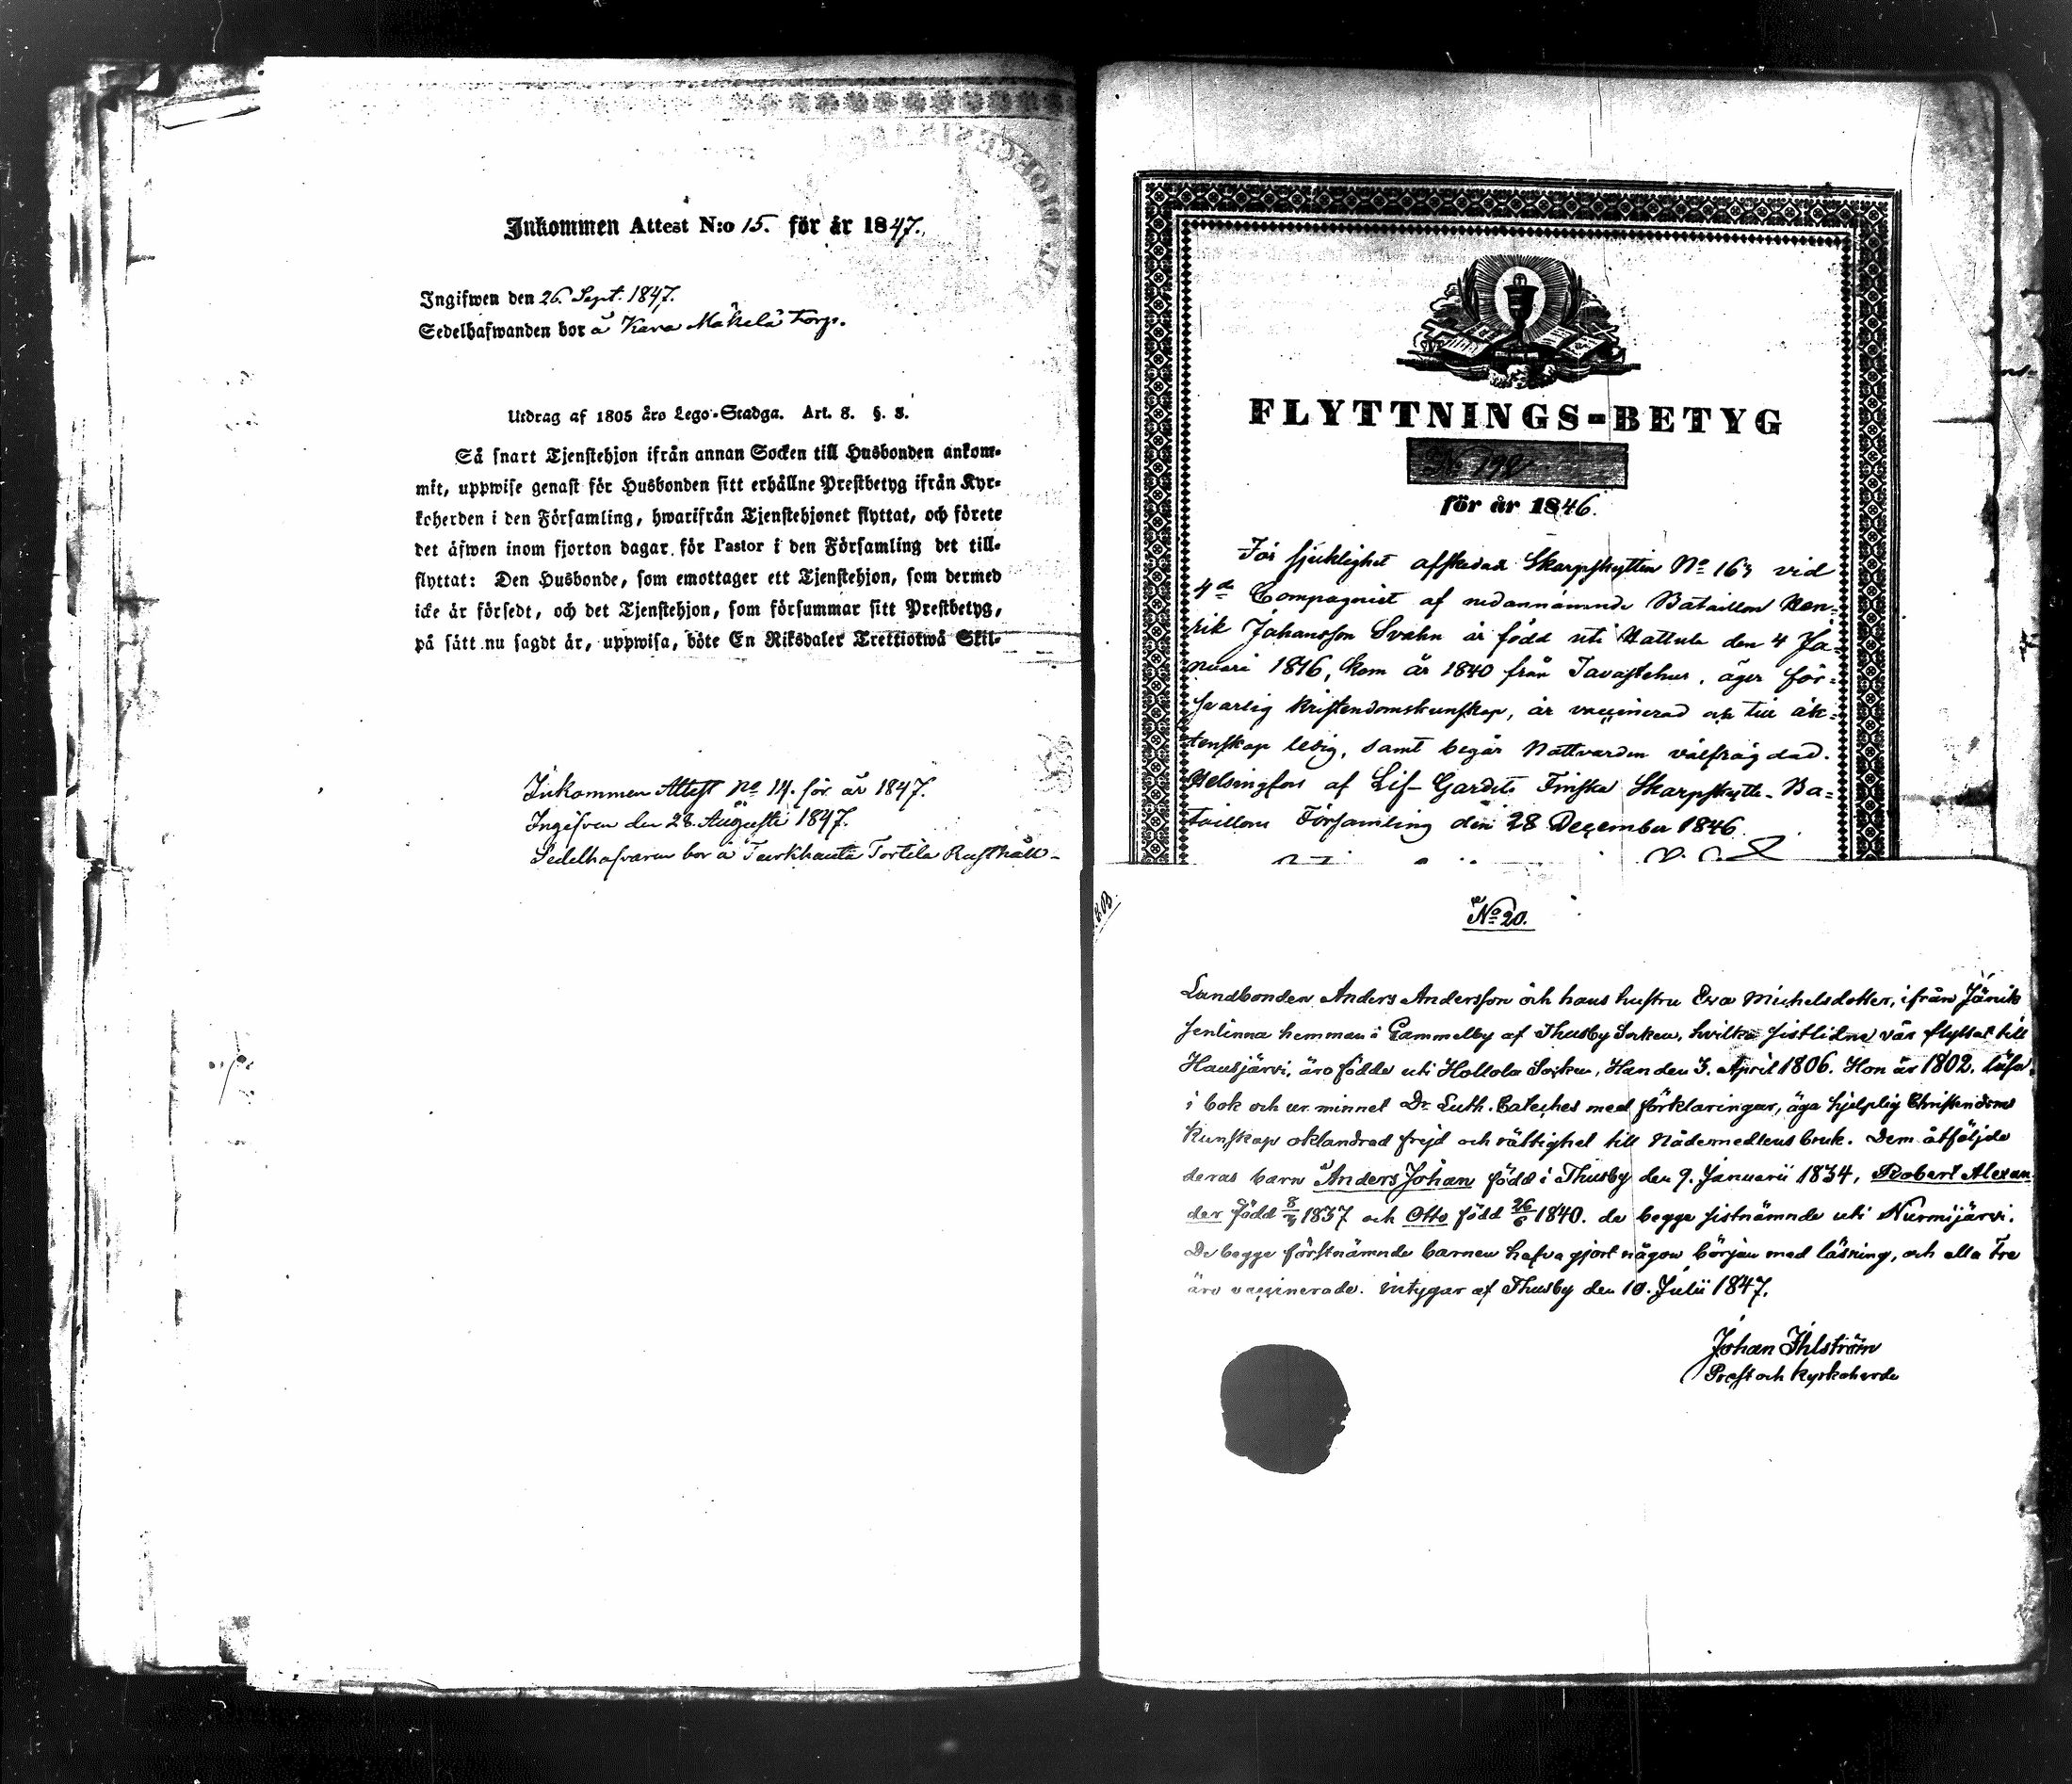 Inkommen Attest N:o 15. för år 1847.
Ingifwen den 26. Sept. 1847.
Sedelhafwanden bor å Kara Mäkelä torp.
Utdrag af 1805 års Lego-Stadga. Art. 8. §. 8.
Så snart Tjenstehjon ifrån annan Socken till Husbonden ankom-
mit, uppwise genast för Husbonden sitt erhållne Prestbetyg ifrån Kyr-
koherden i den Församling, hwarifrån Tjenstehjonet flyttat, och förete
det äfwen inom fjorton dagar för Pastor i den Församling det till-
flyttat: Den Husbonde, som emottager ett Tjenstehjon, som dermed
icke är försedt, och det Tjenstehjon, som försummar sitt Prestbetyg,
på sätt nu sagdt är, uppwisa, böte En Riksdaler Trettiotwå Skil-
Inkommen Attest No 14. för år 1847.
Ingifven den 28. Augusti 1847.
Sedelhafvaren bor å Turkhauta Tortila Rusthåll
FLYTTNINGS-BETYG
No 198
för år 1846.
För sjuklighet afskedad Skarpskytten No 163 vid
4de Compagniet af nedannämnde Bataillon Hen-
rik Johansson Svahn är född uti Hattula den 4 Ja-
nuari 1816, kom år 1840 från Tavastehus, äger för-
svarlig kristendomskunskap, är vaccinerad och till äk-
tenskap ledig, samt begår Nattvarden välfrägdad.
Helsingfors af Lif-Gardets Finska Skarpskytte-Ba-
taillons Församling den 28 December 1846.
No 20.
Landbonden Anders Andersson och hans hustru Eva Michelsdotter, ifrån Jänik
senlinna hemman i Gammelby af Thusby Socken, hvilka sistlidne vår flyttat till
Hausjärvi, äro födde uti Hollola Socken, Han den 3. April 1806. Hon år 1802, läsa
i bok och ur minnet Dr. Luth. Cateches med förklaringar, äga hjelplig Christendoms
kunskap oklandrad frejd och rättighet till Nådemedlens bruk. Dem åtfölja
deras barn Anders Johan född i Thusby den 9. Januarii 1834, Robert Alexan
der född 8/3 1837 och Otto född 26/6 1840. de begge sistnämnde uti Nurmijärvi.
De begge förstnämnde barnen hafva gjort någon början med läsning, och alla tre
äro vaccinerade. intygar af Thusby den 10. Julii 1847.
Johan Ihlström
Prost och Kyrkoherde